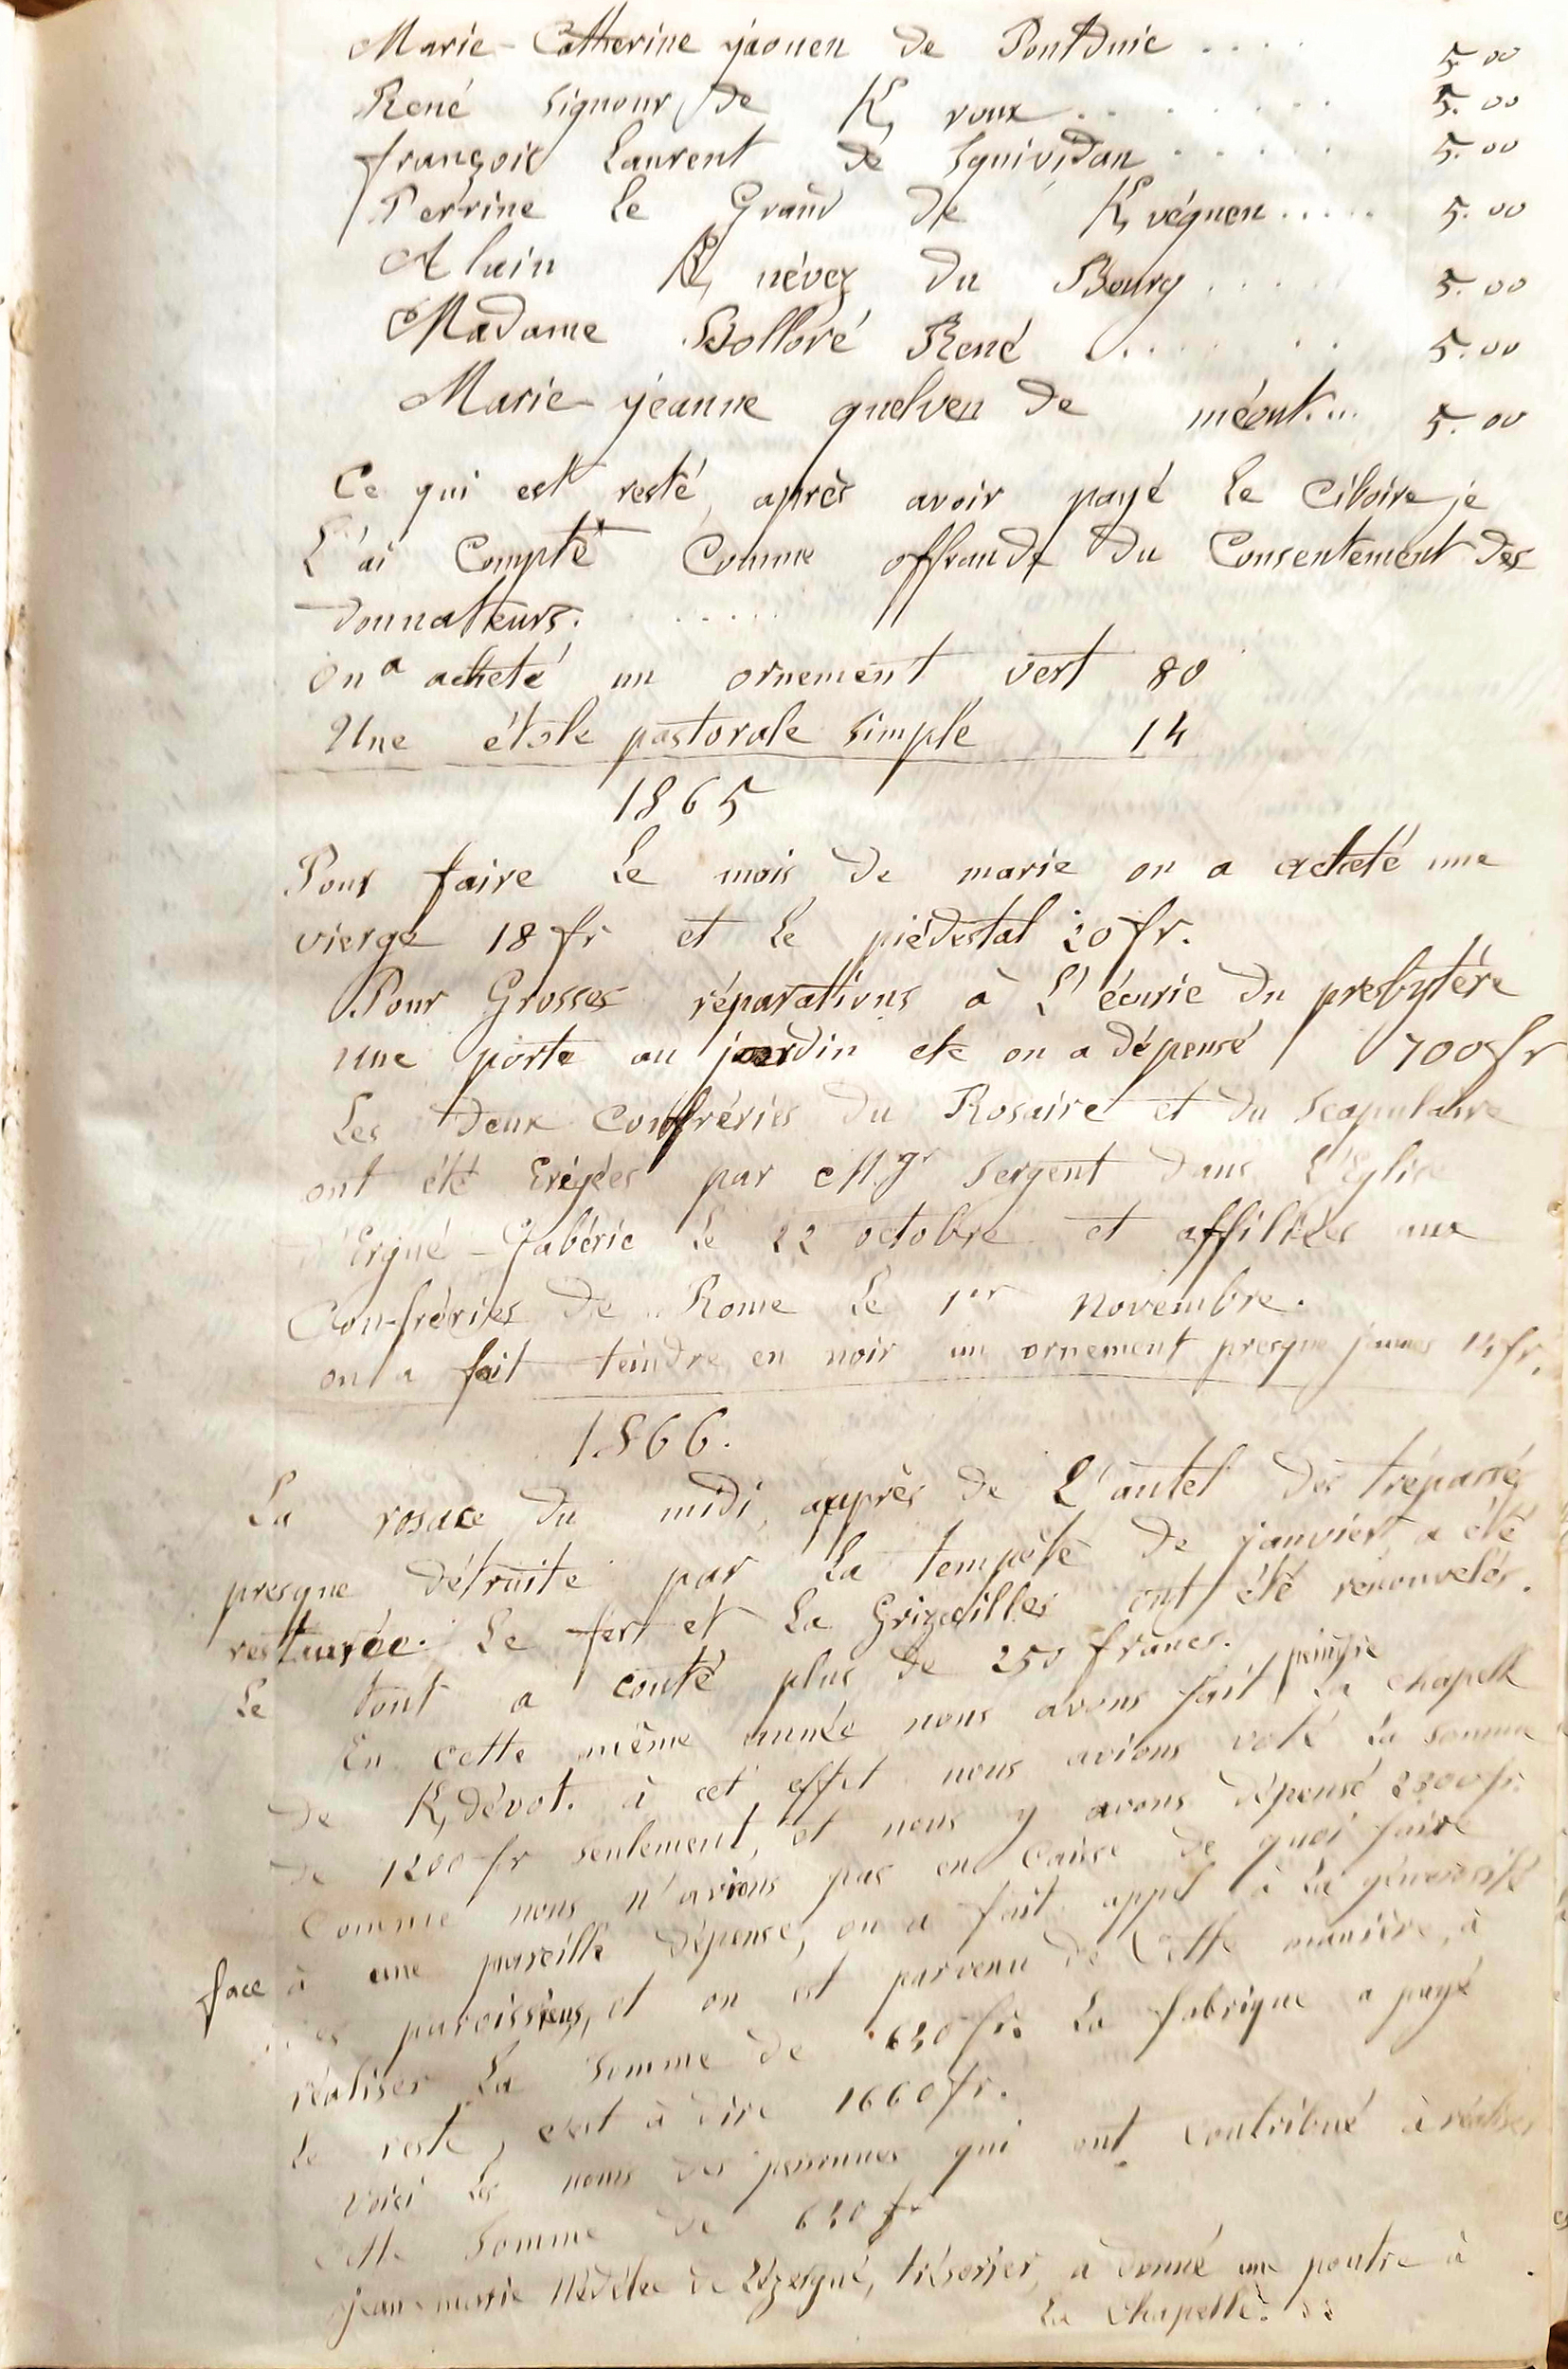 Marie-Catherine jaouen de Pontduic .... 5.00
René Signour de K, voux ........ 5.00
françois Laurent de Squividan ...... 5.00
Perrine Le Grand de K, véguen ..... 5.00
Alain K, névez du Bourg ..... 5.00
Madame Bolloré René ...... 5.00
Marie-jeanne quelven de méout... 5.00
Ce qui est resté, après avoir payé le ciboire je
L'ai Compté Comme offrande du Consentement des
donnateurs. .....
On a acheté un ornement vert 80
Une étole pastorale simple 14
1865
Pour faire Le mois de marie on a acheté une
vierge 18 fr et Le piédestal 20 fr.
Pour Grosses réparations à L'écurie du presbytère
une porte au jardin etc on a dépensé 700 fr
Les deux Confréries du Rosaire et du Scapulaire
ont été Erigées par Mgr Sergent dans L'Eglise
d'Ergué-Gabéric Le 22 octobre et affiliées aux
Confréries de Rome Le 1er novembre.
on a fait teindre en noir un ornement presque jaune 14 fr.
1866.
La rosace du midi, auprès de L'autel des trépassés
presque détruite par La tempête de janvier, a été
restaurée. Le fer et La Grizailles ont été renouvelés.
Le tout a couté plus de 250 francs.
En cette même année nous avons fait peindre La chapelle
de K, dévot. à cet effet nous avions voté La somme
de 1200 fr seulement, et nous y avons dépensé 2300 fr.
Comme nous n'avions pas en caisse de quoi faire
face à une pareille dépense, on a fait appel à La générosité
des paroissiens, et on est parvenu de Cette manière, à
réaliser La Somme de 640 fr. La fabrique a payé
Le reste, c'est à dire 1660 fr.
Voici Les noms des personnes qui ont contribué à réaliser
Cette Somme de 640 fr
jean-marie Nédélec de Lézergué, trésorier, a donné une poutre à
La Chapelle.